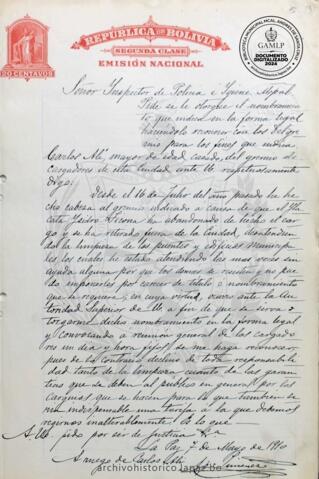 REPUBLICA DE BOLIVIA
SEGUNDA CLASE
EMISIÓN NACIONAL
20 CENTAVOS
BIBLIOTECA MUNICIPAL MCAL. ANDRÉS DE SANTA CRUZ
GAMLP
DOCUMENTO
DIGITALIZADO
2024
Señor Inspector de Policia e Higiene Mpal.
Pide se le otorgue el nombramien-
to que indica en la forma legal
haciéndolo reconocer con los del gre-
mio para los fines que indica
Carlos Alí, mayor de edad casado, del gremio de
Cargadores de esta ciudad ante Ud. respetuosamente
digo:
Desde el 16 de Junio del año pasado he he-
cho cabeza del gremio indicado a causa de que el Ma-
Pedro abandonado de hecho el car-
go y se ha retirado fuera de la Ciudad, desatendien-
do la limpieza de los puentes y edificios municipa-
les los cuales he estado atendiendo las mas veces sin
ayuda alguna por que los demas se y no pue-
do imponerles por carecer de título o nombramiento
que se requiere; en cuya virtud, ocurro ante la Au-
toridad Superior de Ud. a fin de que se sirva o-
torgarme dicho nombramiento en la forma legal
y Convocando a reunion general de los cargado-
res en dia y hora fijos, se me haga reconocer
pues de lo contrario declino de toda responsabili-
dad tanto de la limpieza cuanto de las garan-
tias que se deben al publico en general por las
Cargas que se hacen para lo que tambien se-
ria indispensable una tarifa a la que debemos
regirnos inalterablemente. Es lo que
A Ud. pido por ser de justicia &a.
La Paz 7 de Mayo de 1910
A ruego de Carlos Alí
archivohistorico.lapaz.bo